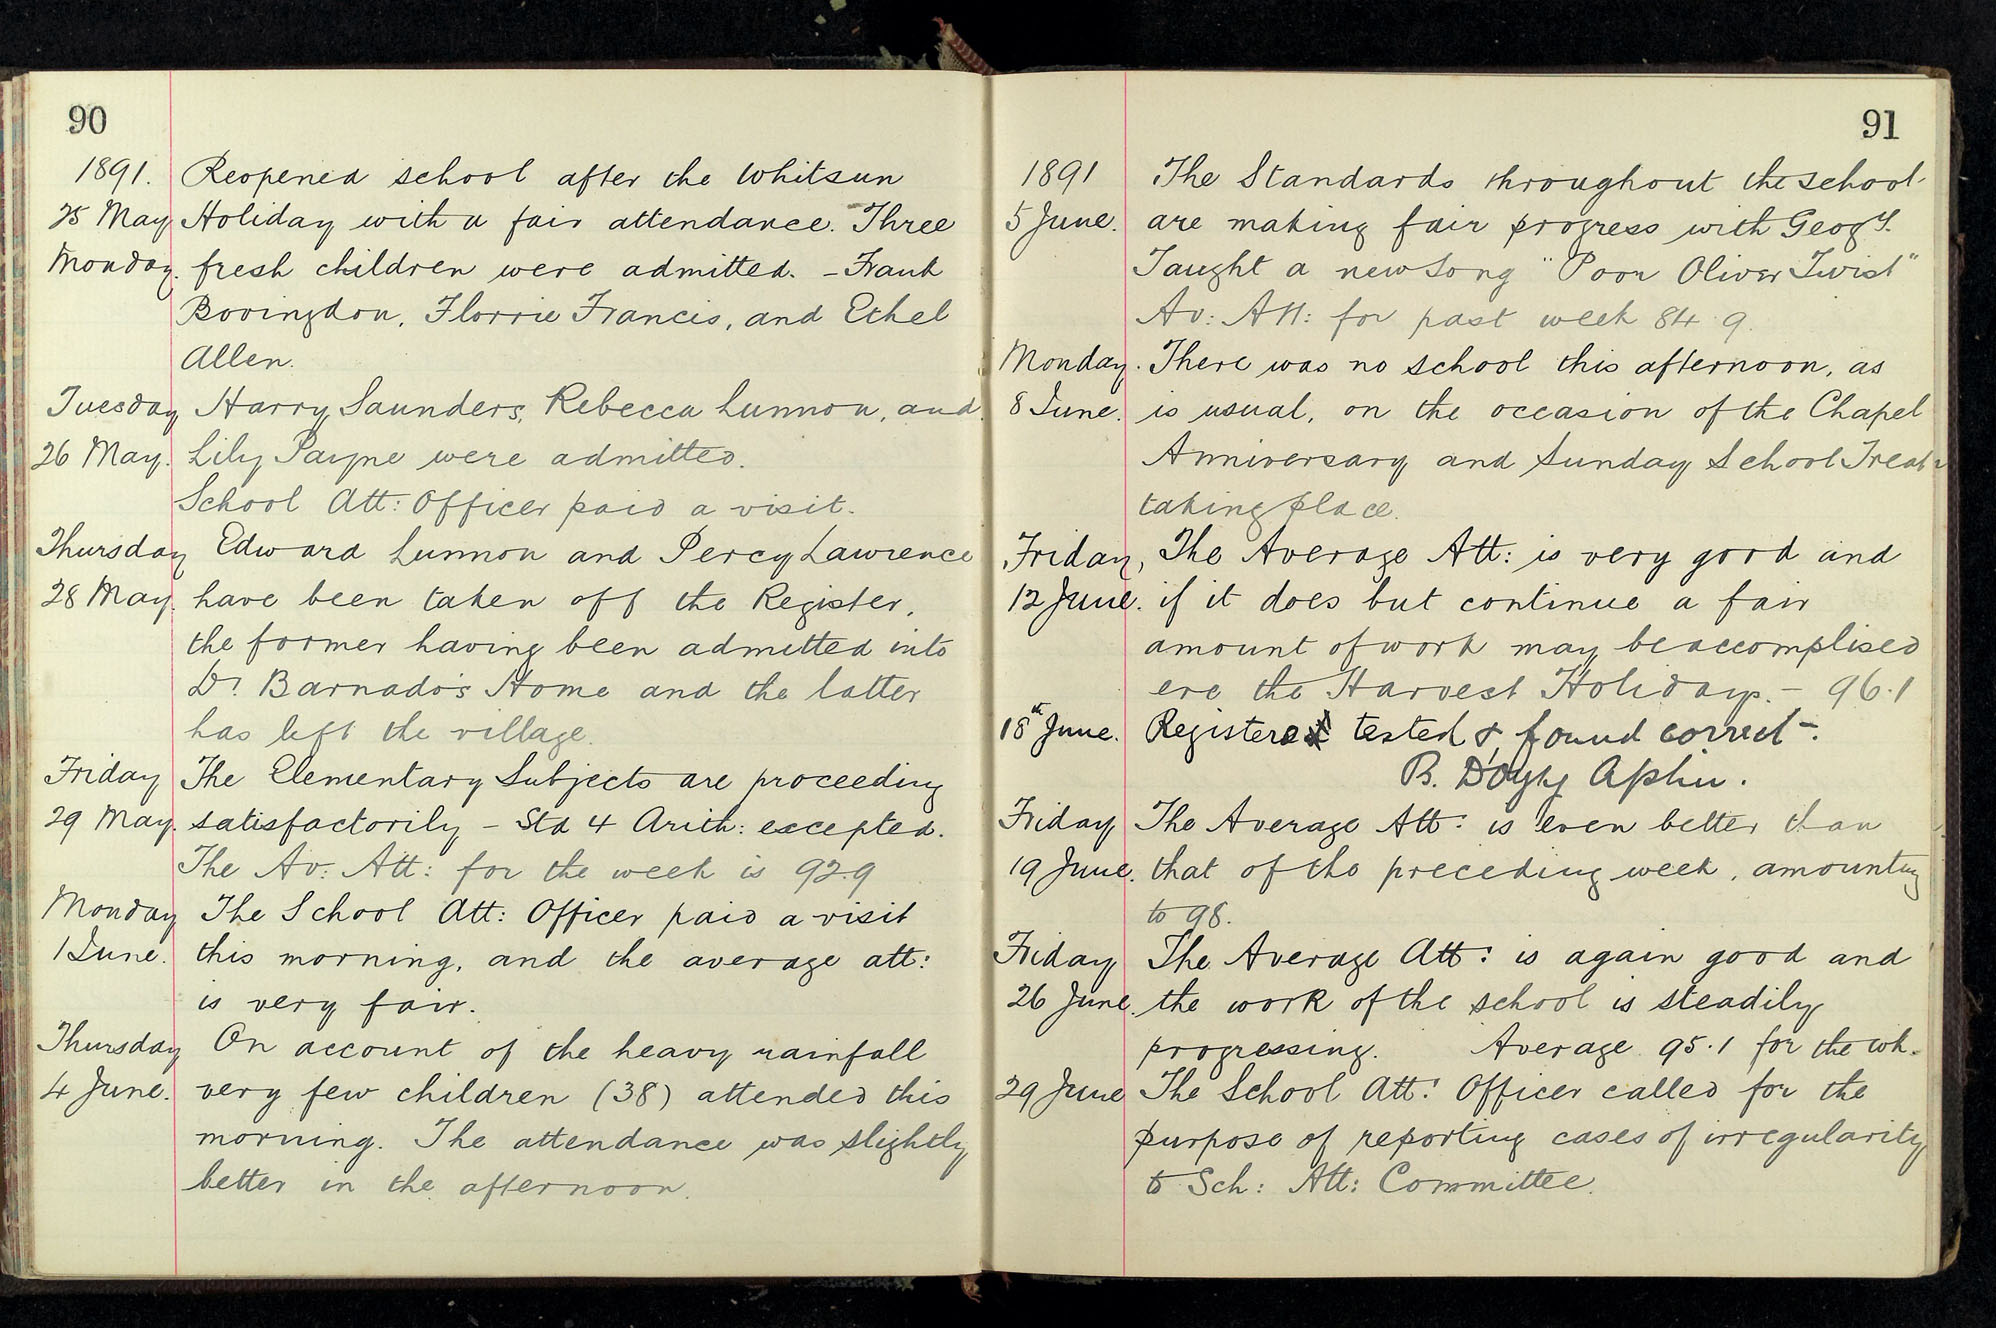 90
1891. Reopened school after the Whitsun
25 May Holiday with a fair attendance. Three
Monday. fresh children were admitted. – Frank
Bovingdon, Florrie Francis, and Ethel
Allen.
Tuesday Harry Saunders, Rebecca Lunnon, and
26 May. Lily Payne were admitted.
School Att: Officer paid a visit.
Thursday Edward Lunnon and Percy Lawrence
28 May. have been taken off the Register,
the former having been admitted into
Dr. Barnado's Home and the latter
has left the village.
Friday The Elementary Subjects are proceeding
29 May. satisfactorily – Std 4 Arith: excepted.
The Av: Att: for the week is 92.9
Monday The School Att: Officer paid a visit
1 June. this morning, and the average att:
is very fair.
Thursday On account of the heavy rainfall
4 June. very few children (38) attended this
morning. The attendance was slightly
better in the afternoon.
91
1891 The Standards throughout the school
5 June. are making fair progress with Geogy.
Taught a new song "Poor Oliver Twist"
Av: Att: for past week 84.9.
Monday. There was no school this afternoon, as
8 June. is usual, on the occasion of the Chapel
Anniversary and Sunday School Treat
taking place.
Friday, The Average Att: is very good and
12 June. if it does but continue a fair
amount of work may be accomplised
ere the Harvest Holidays. – 96.1
18th June. Registers tested & found correct –.
B. D'Oyly Aplin.
Friday The Average Att: is even better than
19 June. that of the preceding week, amounting
to 98.
Friday The Average Att: is again good and
26 June. the work of the school is steadily
progressing. Average 95.1 for the wk.
29 June The School Att: Officer called for the
purpose of reporting cases of irregularity
to Sch: Att: Committee.